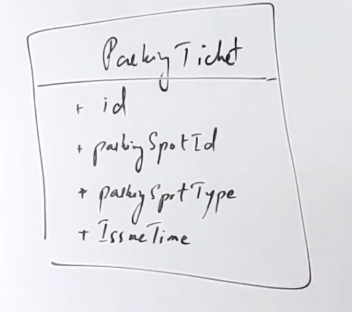 Parking Ticket
+ id
+ parkingSpotId
+ parkingSpotType
+ IssueTime